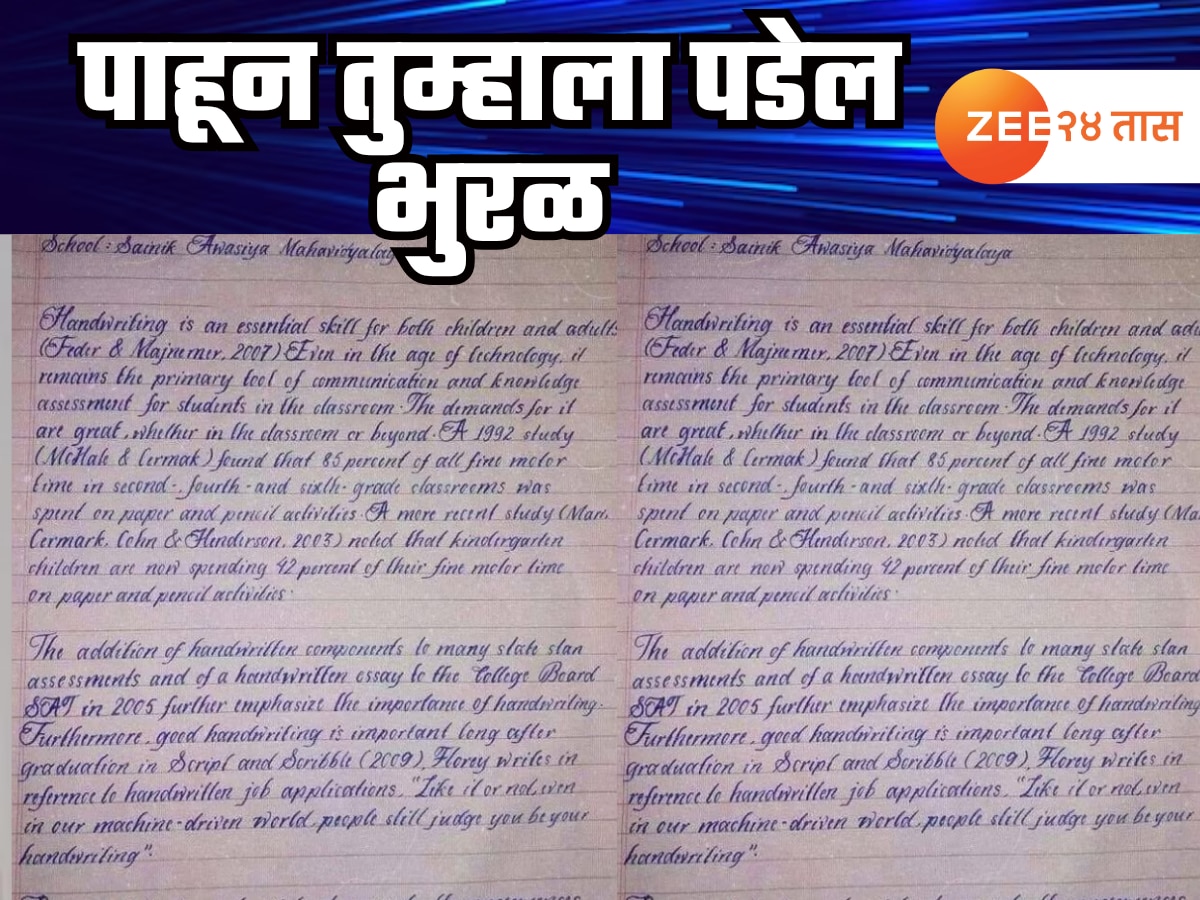 पाहून तुम्हाला पडेल
भुरळ
ZEE २४ तास
School : Sainik Awasiya Mahavidyalaya
Handwriting is an essential skill for both children and adults
(Feder & Majnemer, 2007) Even in the age of technology, it
remains the primary tool of communication and knowledge
assessment for students in the classroom. The demands for it
are great, whether in the classroom or beyond. A 1992 study
(McHale & Cermak) found that 85 percent of all fine motor
time in second-, fourth-and sixth-grade classrooms was
spent on paper and pencil activities. A more recent study (Marr,
Cermark, Cohn & Henderson, 2003) noted that kindergarten
children are now spending 42 percent of their fine motor time
on paper and pencil activities.
The addition of handwritten components to many state stan
assessments and of a handwritten essay to the College Board
SAT in 2005 further emphasize the importance of handwriting.
Furthermore, good handwriting is important long after
graduation in Script and Scribble (2009), Florey writes in
reference to handwritten job applications, "Like it or not, even
in our machine-driven world, people still judge you by your
handwriting".
School : Sainik Awasiya Mahavidyalaya
Handwriting is an essential skill for both children and adu
(Feder & Majnemer, 2007) Even in the age of technology, it
remains the primary tool of communication and knowledge
assessment for students in the classroom. The demands for it
are great, whether in the classroom or beyond. A 1992 study
(McHale & Cermak) found that 85 percent of all fine motor
time in second-, fourth-and sixth-grade classrooms was
spent on paper and pencil activities. A more recent study (Ma
Cermark, Cohn & Henderson, 2003) noted that kindergarten
children are now spending 42 percent of their fine motor time
on paper and pencil activities.
The addition of handwritten components to many state stan
assessments and of a handwritten essay to the College Board
SAT in 2005 further emphasize the importance of handwriting
Furthermore, good handwriting is important long after
graduation in Script and Scribble (2009), Florey writes in
reference to handwritten job applications, "Like it or not, even
in our machine-driven world, people still judge you by your
handwriting".